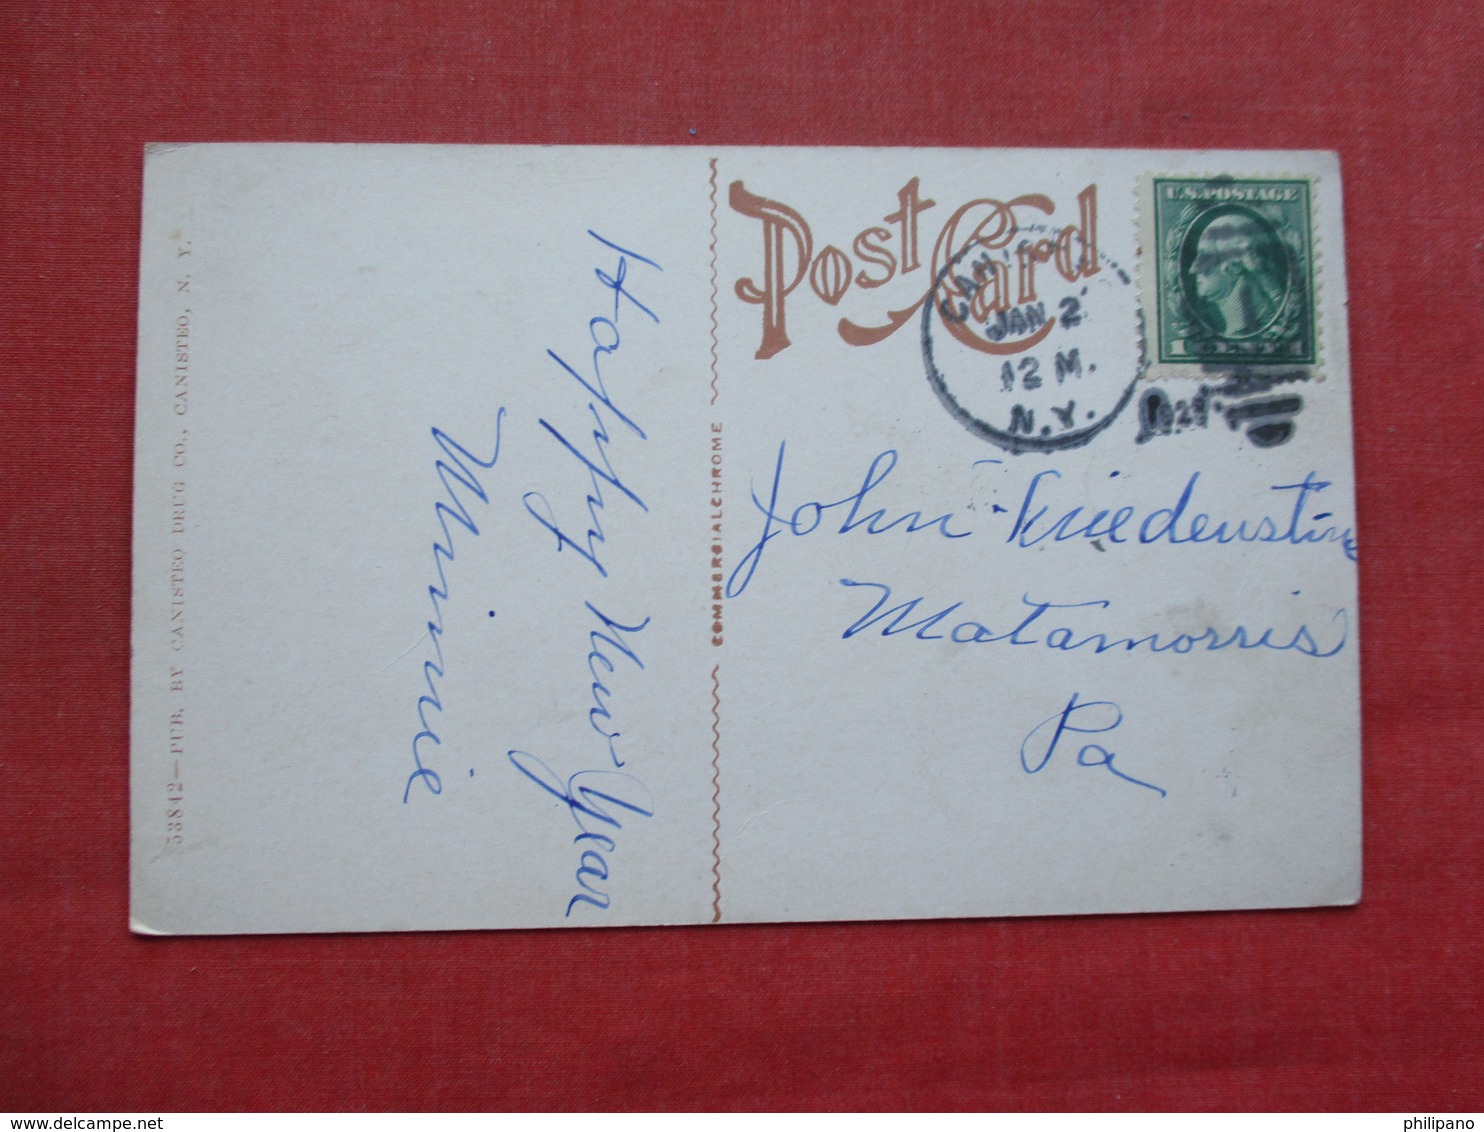 Post Card
U.S. POSTAGE
JAN 2
12 M.
N.Y.
1
Happy New Year
Minnie
John
Matamorris
Pa
COMMERCIALCHROME
53842—PUB. BY CANISTEO DRUG CO., CANISTEO, N. Y.
www.delcampe.net
philipano